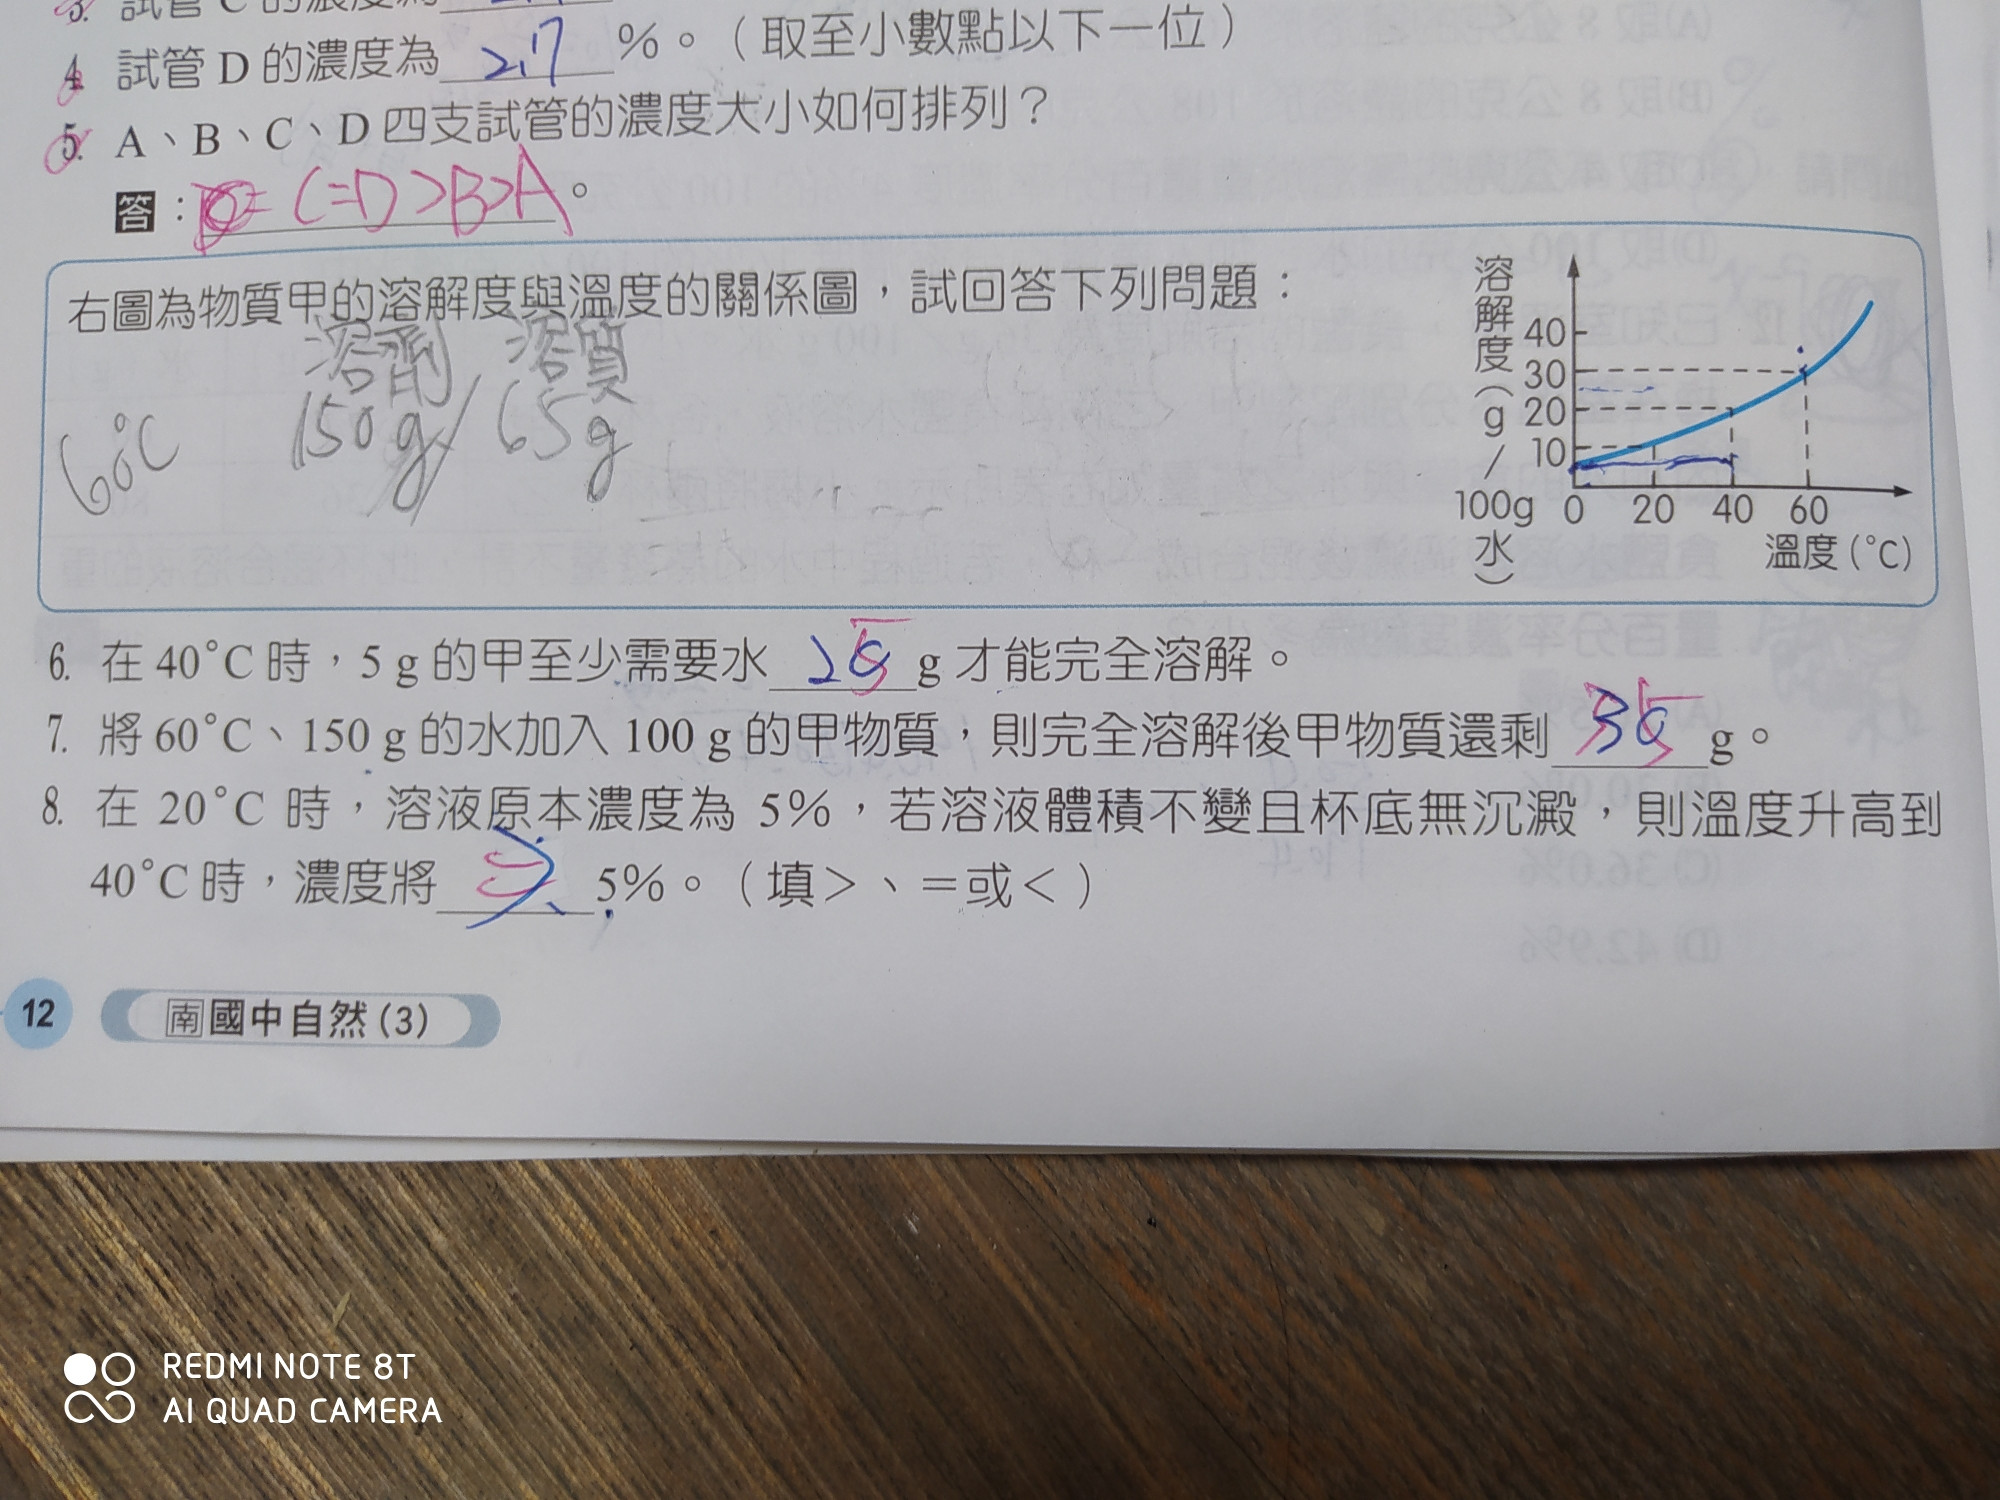 3. 試管 C 的濃度為
4. 試管 D 的濃度為 2.7 %。(取至小數點以下一位)
5. A、B、C、D 四支試管的濃度大小如何排列?
答: C=D>B>A。
右圖為物質甲的溶解度與溫度的關係圖,試回答下列問題:
溶劑 溶質
60℃ 150g/ 65g
溶解度(g/100g水)
40
30
20
10
0 20 40 60
溫度(℃)
6. 在 40℃ 時,5 g 的甲至少需要水 25 g 才能完全溶解。
7. 將 60℃、150 g 的水加入 100 g 的甲物質,則完全溶解後甲物質還剩 g。
8. 在 20℃ 時,溶液原本濃度為 5%,若溶液體積不變且杯底無沉澱,則溫度升高到
40℃ 時,濃度將 = 5%。(填>、=或<)
12 南 國中自然(3)
REDMI NOTE 8T
AI QUAD CAMERA